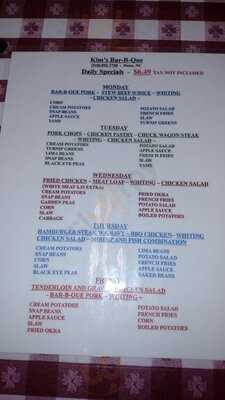 Kim's Bar-B-Que
Daily Specials - $6.49 TAX NOT INCLUDED
MONDAY
BAR-B-QUE PORK - STEW BEEF W/RICE - WHITING
- CHICKEN SALAD -
CORN POTATO SALAD
CREAM POTATOES FRENCH FRIES
APPLE SAUCE SLAW
YAMS TURNIP GREENS
TUESDAY
PORK CHOPS - CHICKEN PASTRY - CHUCK WAGON STEAK
- WHITING - CHICKEN SALAD -
CREAM POTATOES POTATO SALAD
TURNIP GREENS APPLE SAUCE
LIMA BEANS FRENCH FRIES
SNAP BEANS SLAW
BLACK EYE PEAS YAMS
WEDNESDAY
FRIED CHICKEN - MEAT LOAF - WHITING - CHICKEN SALAD
(WHITE MEAT $.50 EXTRA)
CREAM POTATOES FRIED OKRA
SNAP BEANS FRENCH FRIES
GARDEN PEAS LIMA BEANS
CORN POTATO SALAD
SLAW APPLE SAUCE
CABBAGE BOILED POTATOES
THURSDAY
HAMBURGER STEAK W/GRAVY - BBQ CHICKEN - WHITING
CHICKEN SALAD - SHRIMP AND FISH COMBINATION
CREAM POTATOES LIMA BEANS
SNAP BEANS POTATO SALAD
CORN FRENCH FRIES
SLAW APPLE SAUCE
BLACK EYE PEAS BAKED BEANS
TENDERLOIN AND GRAVY - CHICKEN SALAD
- BAR-B-QUE PORK - WHITING -
CREAM POTATOES POTATO SALAD
SNAP BEANS FRENCH FRIES
APPLE SAUCE CORN
SLAW BOILED POTATOES
FRIED OKRA